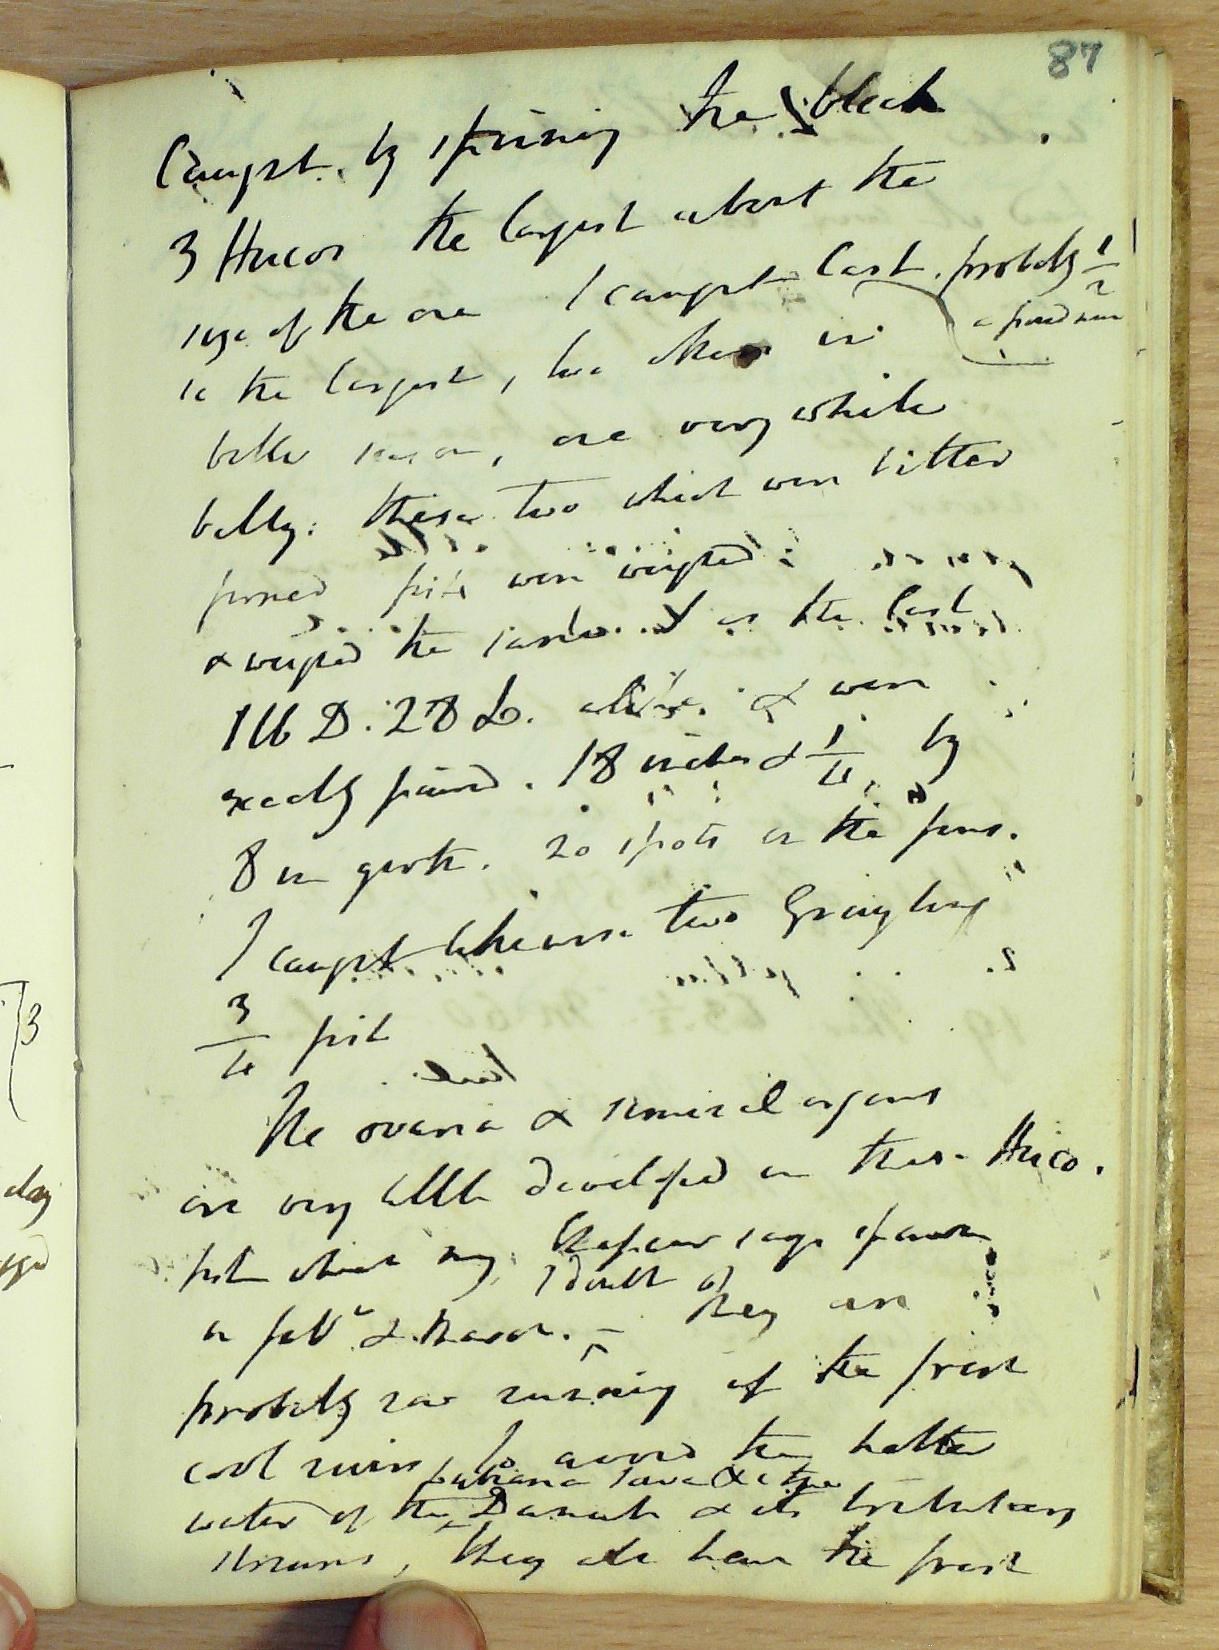 87
Caught by spinning the bleak
3 Hucos the largest about the
size of the one I caught last. probably 1/2
a pound more
is the largest, two others in
better season, one very white
belly. these two which were better
formed fish were weighed
& weighed the same as the last
were
exactly paired. 18 inches & 1/4 by
8 in girth. 20 spots on the fins.
I caught likewise two Grayling
3/4 fish
The ovaria & seminal organs
are very little developed in these Huco.
fish which may spawn
I doubt it
in feby & March. – They are
probably now running up the fresh
cool rivers to avoid the hotter
Save &c
water of the Danube & its tributary
streams, they also have the fresh
day
3